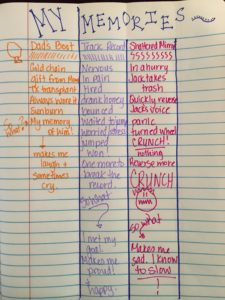 MY MEMORIES
Dad's Boat
Gold chain
gift from Mom
TK transplant
Always wore it
Sunburn
My memory
of him!
makes me
laugh +
sometimes
cry.
So
what?
Track Record
Nervous
In pain
Tired
drank honey
bounced
Waited to jump
Worried,
Jumped
Won!
One more to
break the
record.
So what?
I met my
goal.
Makes me
proud!
happy.
Shattered Mirror
SSSSSSSSS
In a hurry
Jack takes
trash
Quickly reverse
Jack's voice
panic
turned wheel
CRUNCH!
nothing
Reverse more
CRUNCH
So what
Makes me
sad. I know
to slow
!